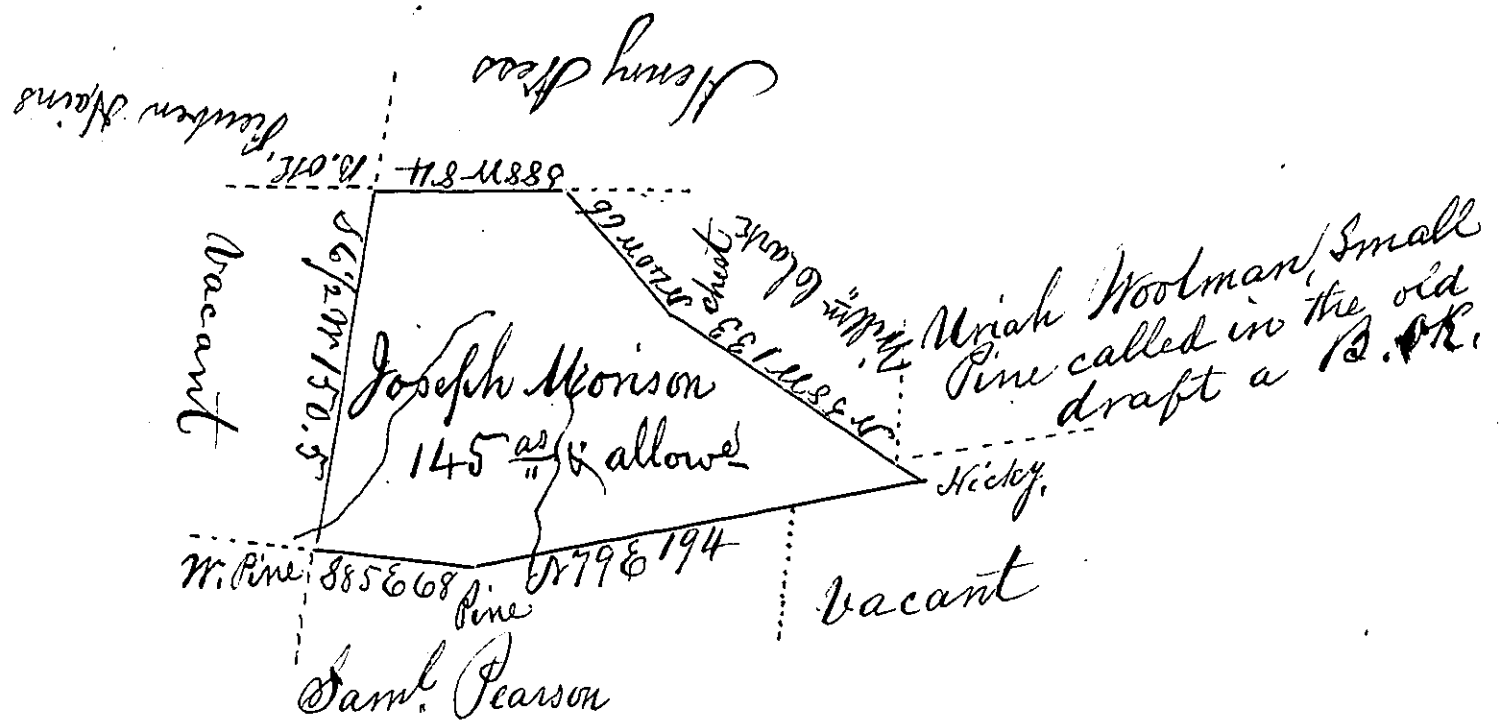 Henry Hess
Reuben Hains
B.OK,
S88W84
N40W66
Chest
Willm Clark
N58W133
Uriah Woolman, Small
Pine called in the old
draft a B.OK.
Vacant
S6½W150.5
Joseph Morison
145 as & allowe
Hicky.
W. Pine
S85E68
Pine
N79E194
Vacant
Saml. Pearson